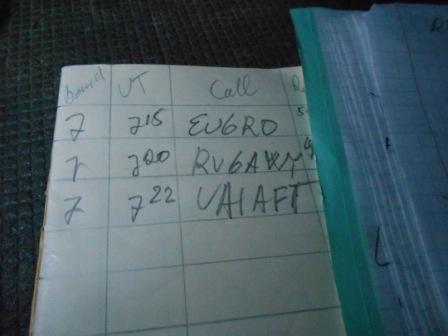 Band UT Call
7 7 15 EU6RO
7 7 20
7 7 22 UA1AFT